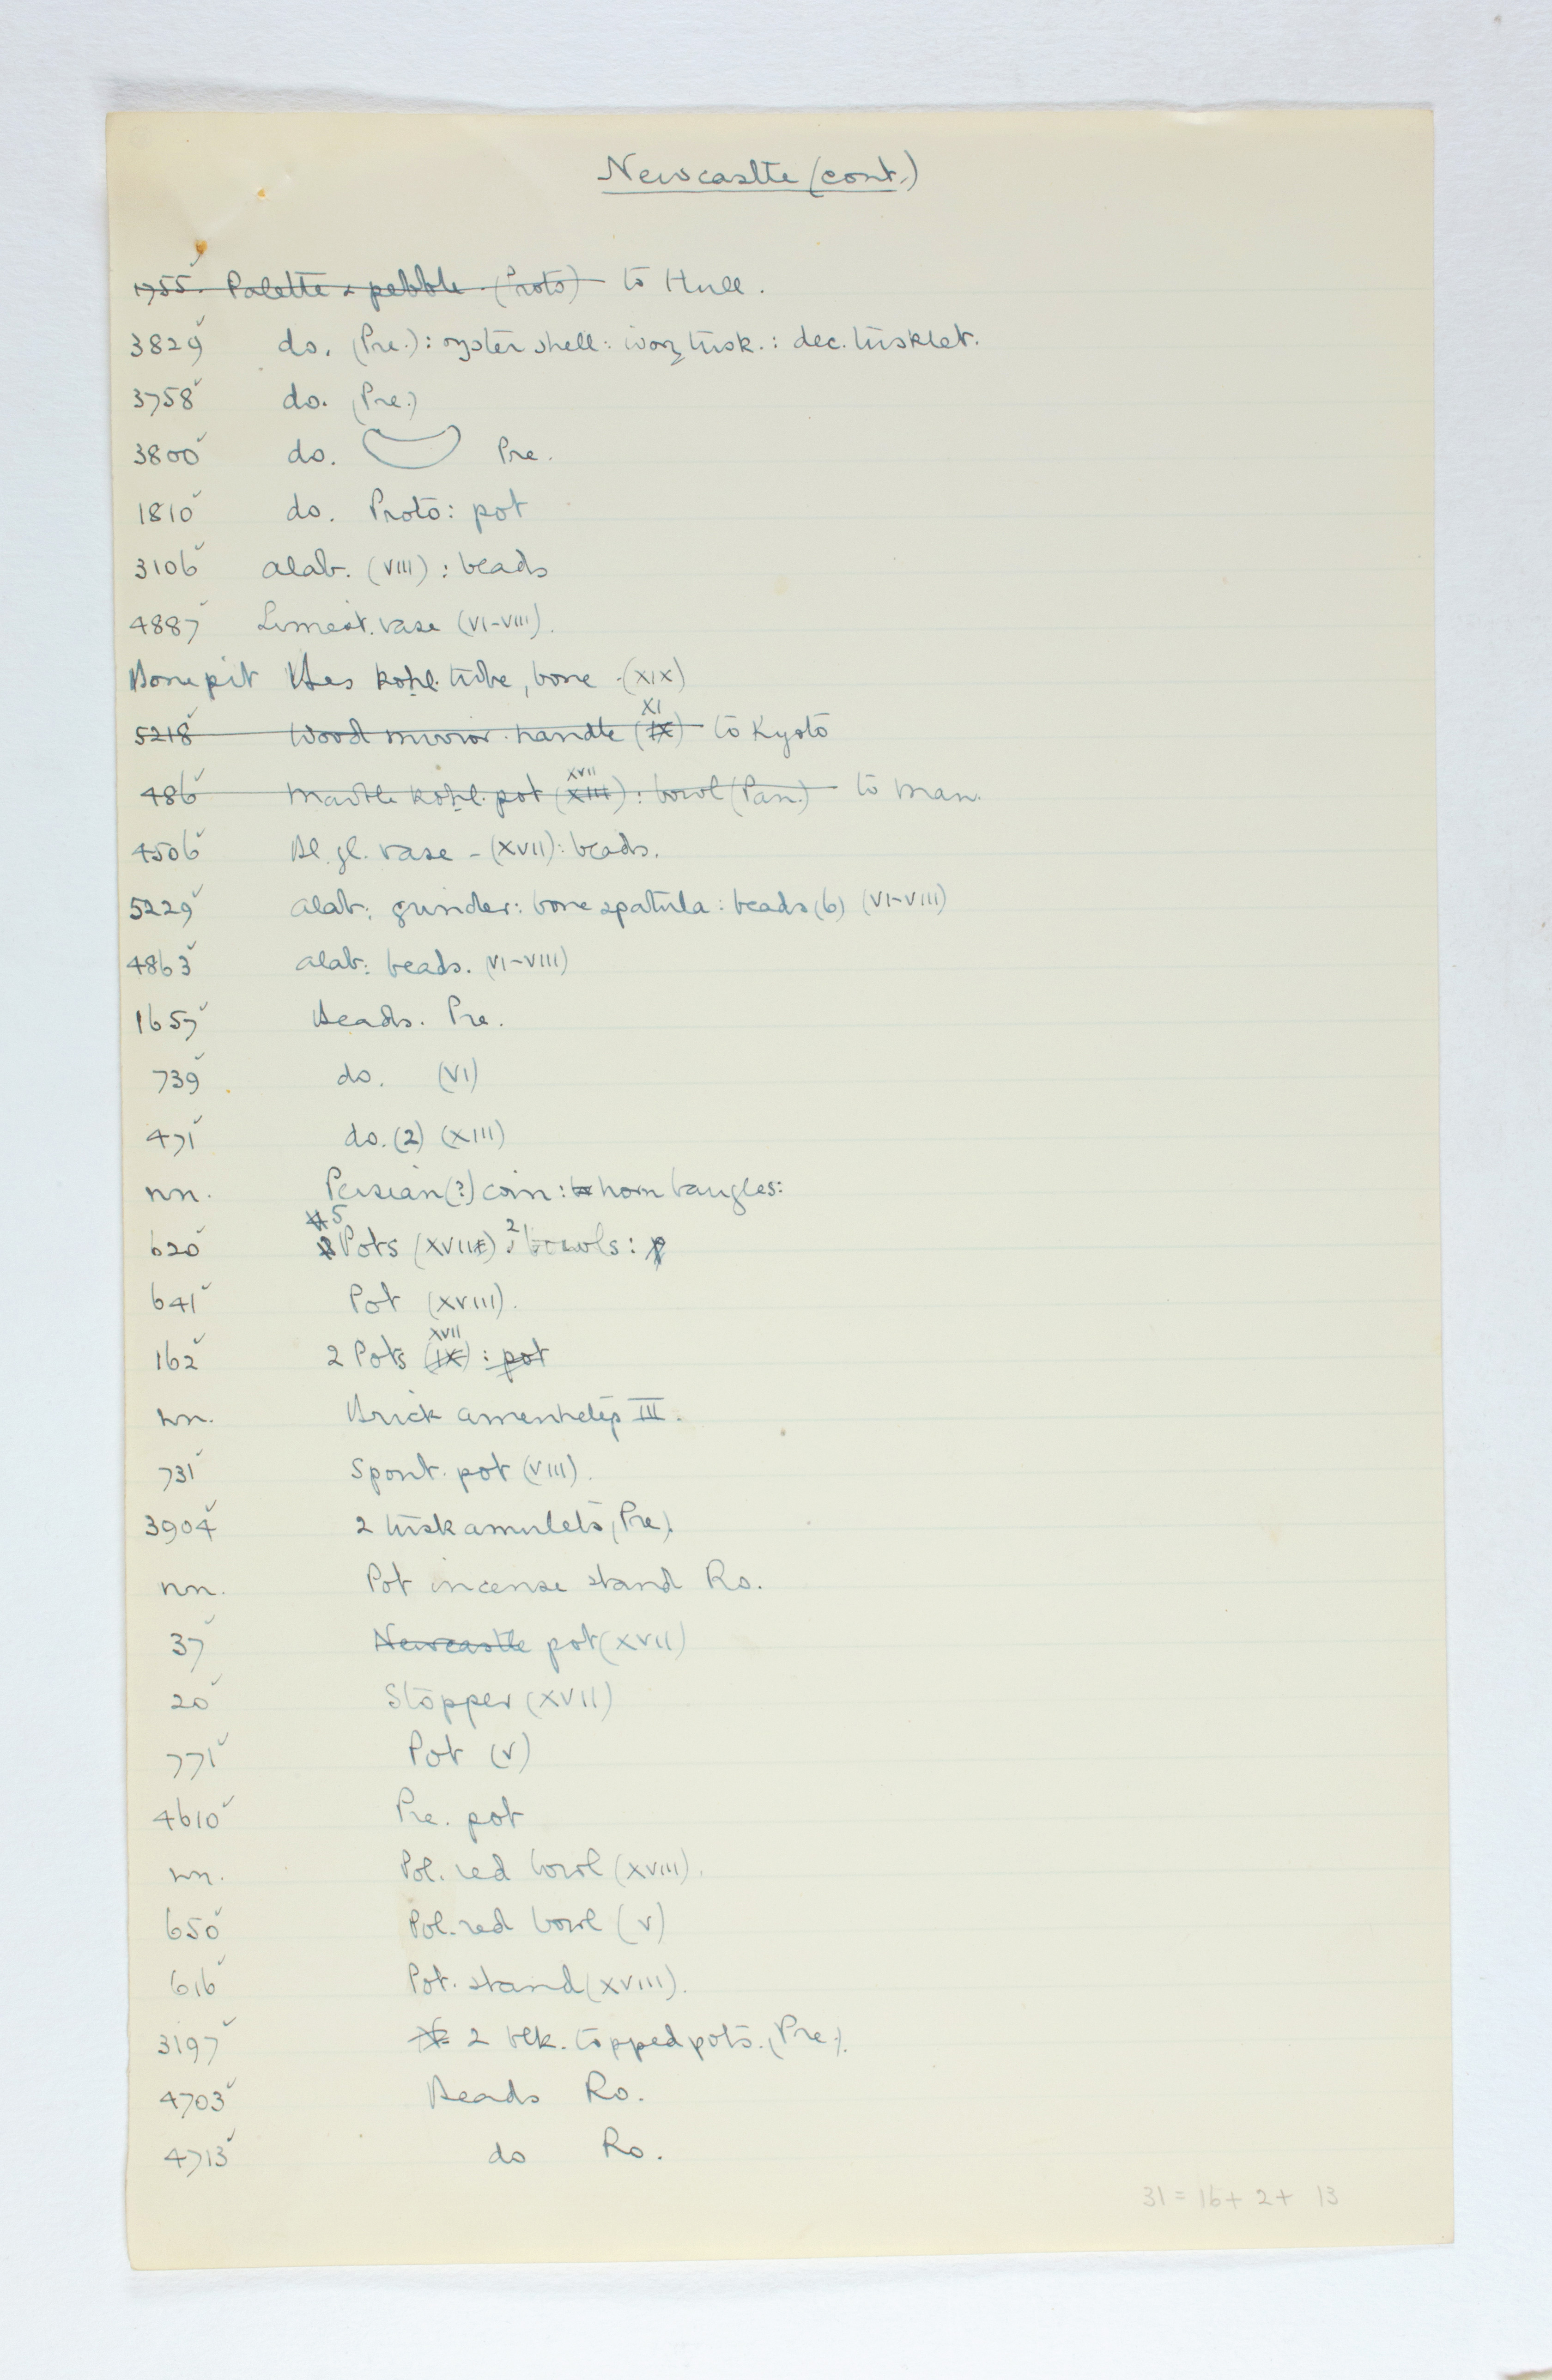 Newcastle (cont.)
1755. Palette & pebble (Proto) to Hull.
3829 do. (Pre.): oyster shell: ivory tusk.: dec. tusklet.
3758 do. (Pre.)
3800 do. Pre.
1810 do. Proto: pot
3106 alab. (VIII): beads
4887 Limest. vase (VI-VIII).
Bone pit Bes kohl tube, bone (XIX)
5218 Wood mirror handle (IX) XI to Kyoto
486 Marble kohl pot (XIII) XVII: bowl (Pan.) to Man.
4506 Bl. gl. vase - (XVII): beads.
5229 alab: grinder: bone spatula: beads (6) (VI-VIII)
4863 alab: beads. (VI-VIII)
1657 Beads. Pre.
739 do. (VI)
471 do. (2) (XIII)
nn. Persian (?) coin: horn bangles:
620 5 Pots (XVII): 2 bowls:
641 Pot (XVIII).
162 2 Pots (IX) XVII: pot
nn. Brick Amenhetep III.
731 Spout. pot (VIII).
3904 2 tusk amulets (Pre).
nn. Pot incense stand Ro.
37 Newcastle pot (XVII)
20 Stopper (XVII)
771 Pot (V)
4610 Pre. pot
nn. Pol. red bowl (XVIII).
650 Pol. red bowl (V)
616 Pot. stand (XVIII).
3197 2 blk. topped pots. (Pre).
4703 Beads Ro.
4713 do Ro.
31 = 16 + 2 + 13